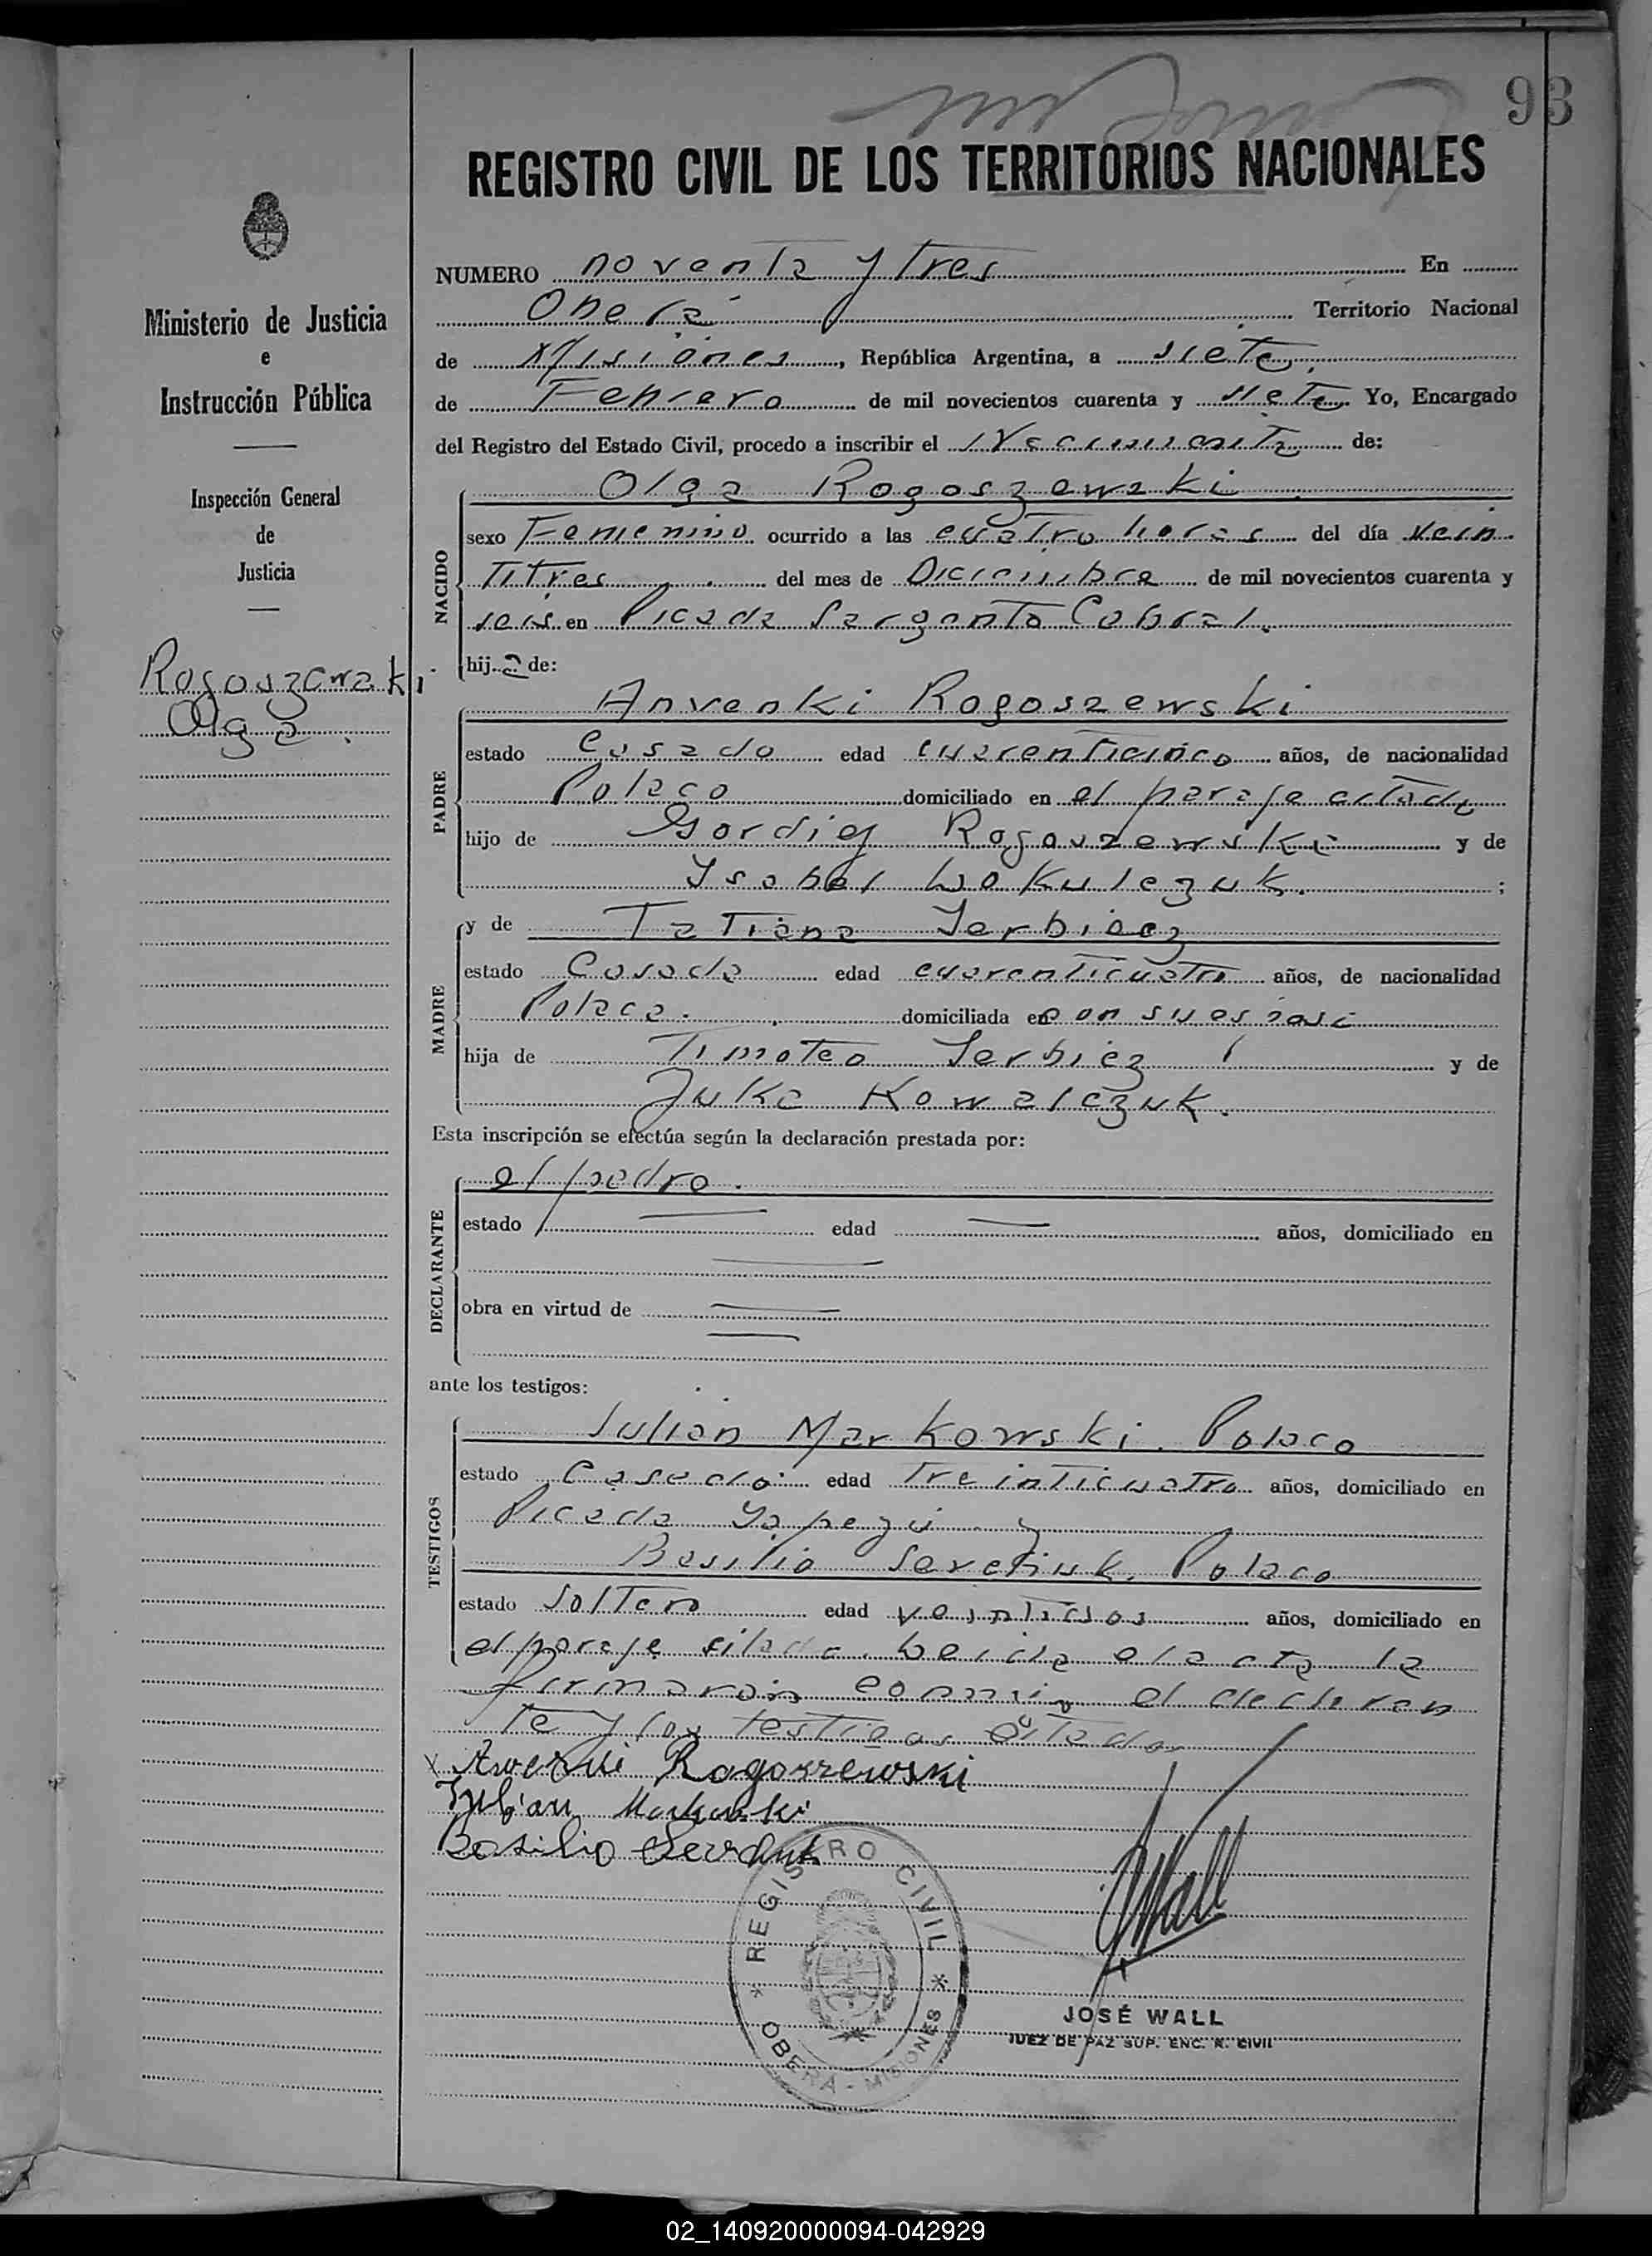 93
REGISTRO CIVIL DE LOS TERRITORIOS NACIONALES
Ministerio de Justicia
e
Instrucción Pública
Inspección General
de
Justicia
Rogoszewski
Olga
NUMERO noventa y tres En
Oberá Territorio Nacional
de Misiones, República Argentina, a siete
de Febrero de mil novecientos cuarenta y siete Yo, Encargado
del Registro del Estado Civil, procedo a inscribir el Nacimiento de:
NACIDO
Olga Rogoszewski
sexo Femenino ocurrido a las cuatro horas del día vein
titres del mes de Diciembre de mil novecientos cuarenta y
seis en Picada Sargento Cabral.
hija de:
PADRE
Anvenki Rogoszewski
estado Casado edad cuarenticinco años, de nacionalidad
Polaco domiciliado en el paraje citado
hijo de Gordiej Rogoszewski y de
Ysabel Wakulczuk. ;
MADRE
y de Tatiana Serbiez
estado Casada edad cuarenticuatro años, de nacionalidad
Polaca. domiciliada en con su esposo
hija de Timoteo Serbiez y de
Juka Kowalczuk.
Esta inscripción se efectúa según la declaración prestada por:
DECLARANTE
el padre.
estado edad años, domiciliado en
obra en virtud de
ante los testigos:
TESTIGOS
Julian Markowski. Polaco
estado Casado edad treinticuatro años, domiciliado en
Picada Yapeyú y
Basilio Polaco
estado Soltero edad veintidos años, domiciliado en
el paraje citado. Leida el acta la
firmaron conmigo el declaran
te y los testigos citados
x Awerki Rogoszewski
Julian Markowski
Basilio
REGISTRO CIVIL
* OBERA - MISIONES *
JWall
JOSÉ WALL
JUEZ DE PAZ SUP. ENC. R. CIVIL
02_140920000094-042929